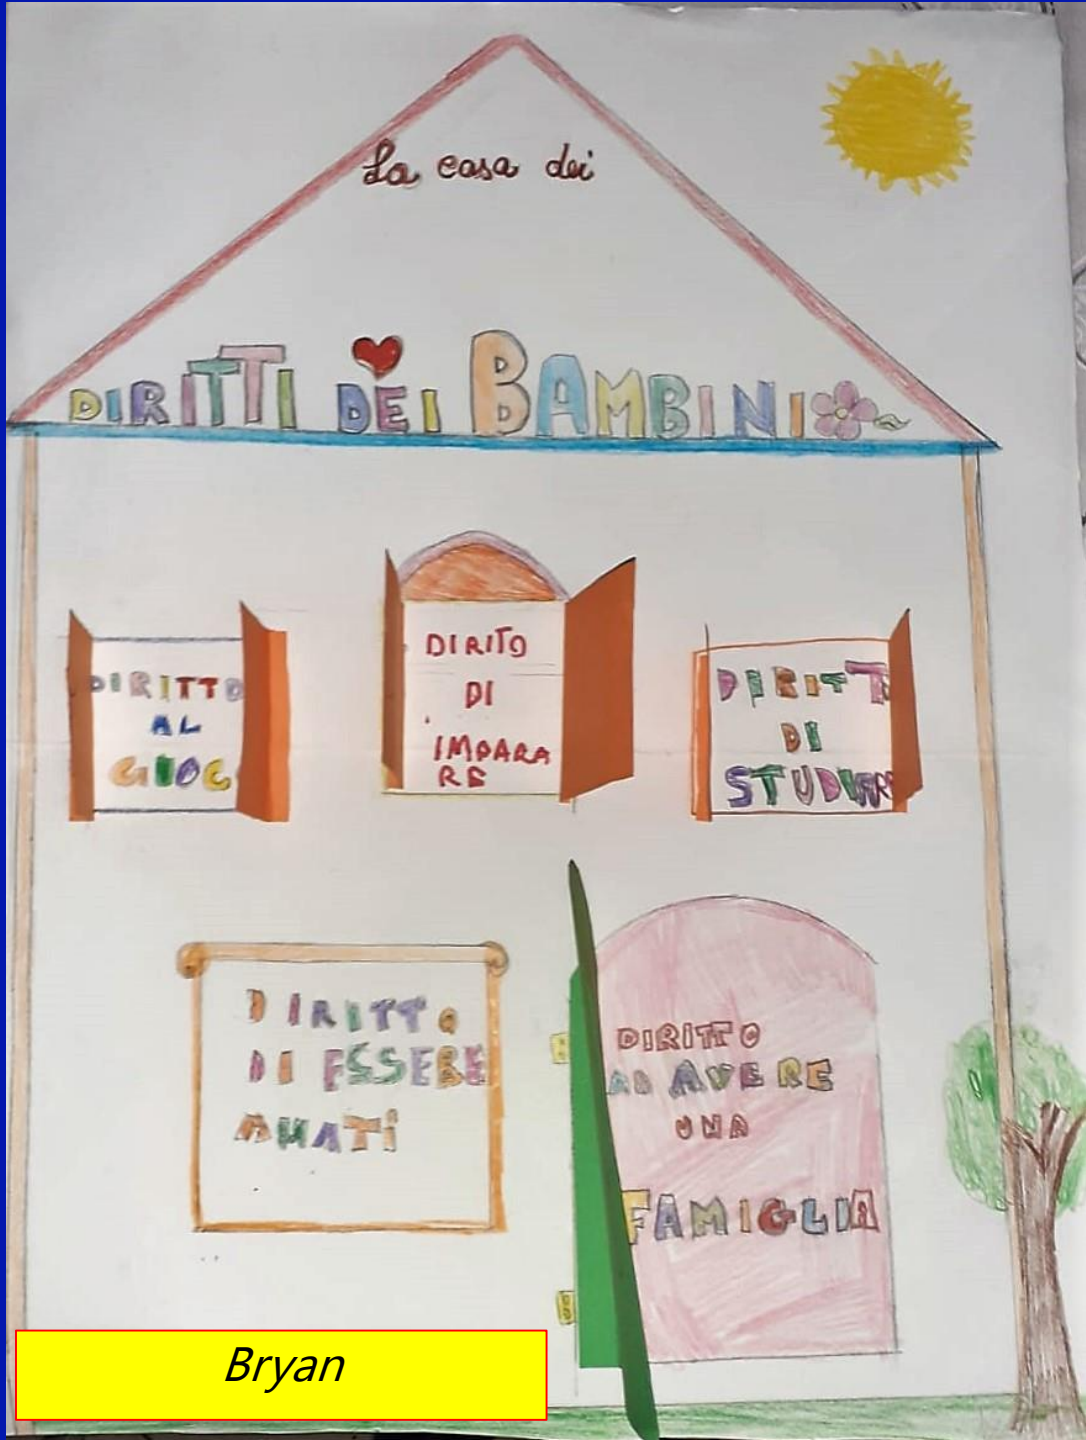 La casa dei
DIRITTI DEI BAMBINI
DIRITTO
AL
GIOC
DIRITO
DI
IMPARA
RE
DIRITT
DI
STUDIARE
DIRITTO
DI ESSERE
AMATi
DIRITTO
AD AVERE
UNA
FAMIGLIA
Bryan